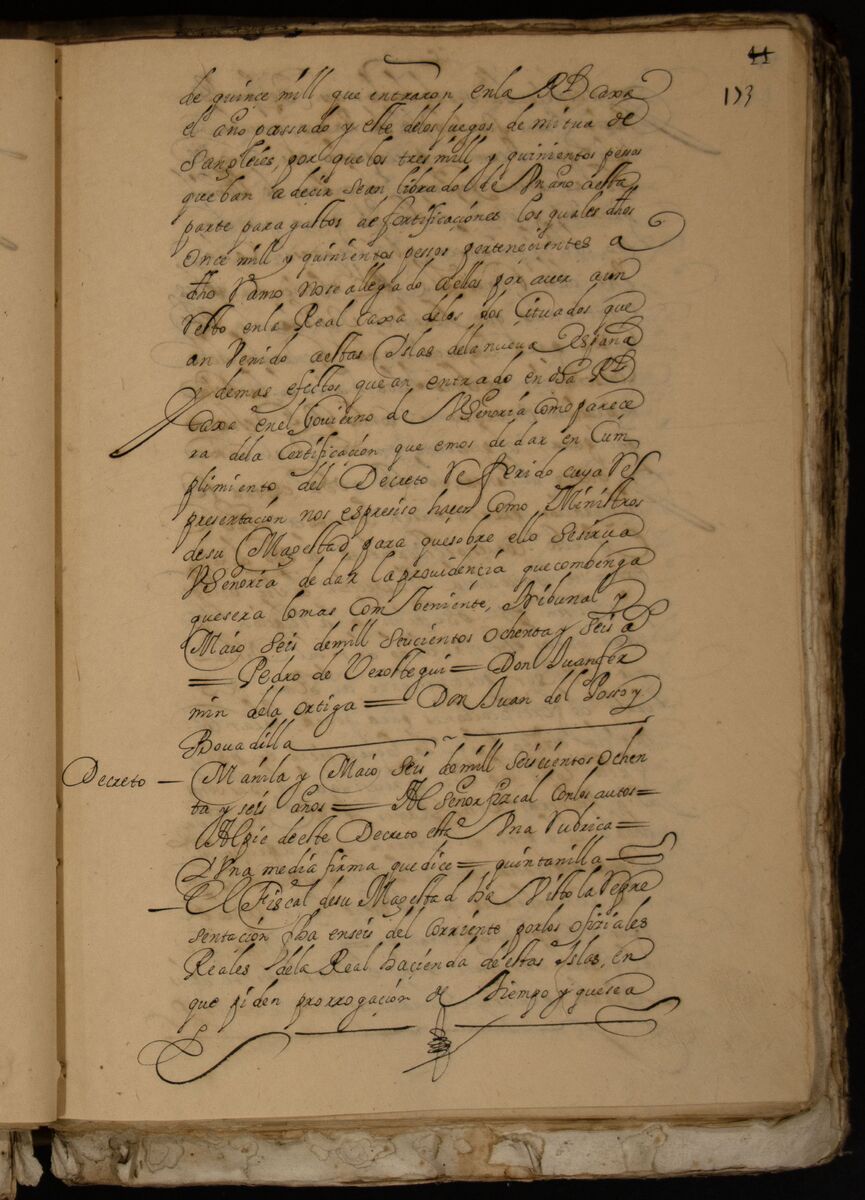 44
173
de quince mill que entraron en la Rl caxa
el año passado y este de los juegos de mitua de
Sangleies, por que los tres mill y quinientos pessos
que ban a decir sean librado de Un año aesta
parte para gastos de fortificaciones los quales dhos
Once mill y quinientos pessos pertenecientes a
dho Ramo no se allegado a ellos por auer aun
Resto en la Real caxa de los dos Cituados que
an Uenido a estas Islas de la nueua España
y demas efectos que an entrado en dha Rl
Caxa en el Gouierno de Vseñoria Como parece
ra de la Certificación que emos de dar en Cum
plimiento del Decreto Referido cuya Re
presentación nos es preciso hacer Como Ministros
de su Magestad para que sobre ello se sirua
Vseñoria de dar la prouidencia que combenga
que sera lo mas Combeniente, Tribunal y
Maio seis de mill seiscientos ochenta y seis as
= Pedro de Verastegui = Don Juan fer
min de la ortiga = Don Juan del Posso y
Bouadilla
Decreto — Manila y Maio seis de mill seiscientos ochen
ta y seis años = Al Señor fizcal Con los autos =
Al pie de este Decreto está Una Rubrica =
Y Una media firma que dice = quintanilla —
— El Fiscal de su Magestad ha Visto la Repre
sentación fha en seis del Corriente por los ofiziales
Reales de la Real hacienda de estas Islas, en
que piden prorrogación de tiempo y que sea